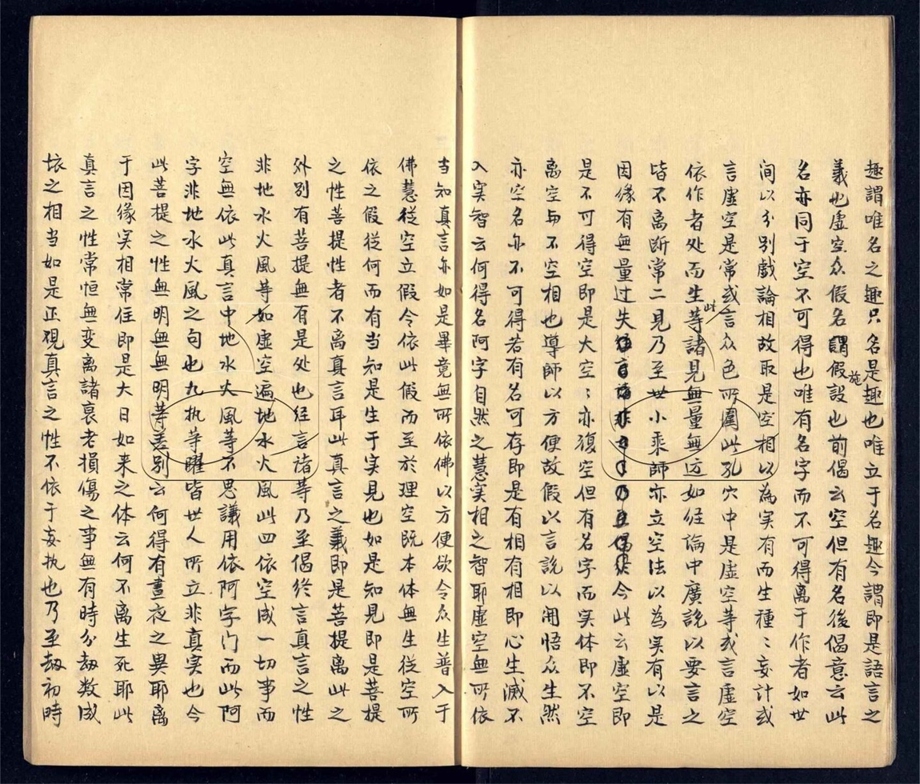 趣謂唯名之趣只名是趣也唯立于名趣今謂即是語言之
義也虛空众假名謂假設也前偈云空但有名後偈意云此
施
名亦同于空不可得也唯有名字而不可得离于作者如世
間以分別戲論相故取是空相以為实有而生種〻妄計或
言虛空是常或言众色所圍此孔穴中是虛空等或言虛空
依作者处而生等諸見無量無边如经論中廣說以要言之
此
皆不离断常二見乃至世小乘師亦立空法以為实有以是
因缘有無量过失今此云虛空即
是不可得空即是大空〻亦復空但有名字而实体即不空
离空与不空相也導師以方便故假以言說以開悟众生然
亦空名亦不可得若有名可存即是有相有相即心生滅不
入实智云何得名阿字自然之慧实相之智耶虛空無所依
当知真言亦如是畢竟無所依佛以方便欲令众生普入于
佛慧從空立假令依此假而至於理空既本体無生從空所
依之假從何而有当知是生于实見也如是知見即是菩提
之性菩提性者不离真言耳此真言之義即是菩提离此之
外别有菩提無有是处也经言諸等乃至偈终言真言之性
非地水火風等如虛空遍地水火風此四依空成一切事而
空無依此真言中地水火風等不思議用依阿字门而此阿
字非地水火風之句也九执等曜皆世人所立非真实也今
此菩提之性無明無無明等差别云何得有晝夜之異耶离
于因缘实相常住即是大日如来之体云何不离生死耶此
真言之性常恒無变离諸衰老損傷之事無有時分劫数成
坏之相当如是正观真言之性不依于妄执也乃至劫初時